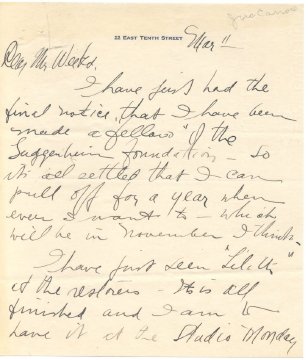 22 EAST TENTH STREET
Mar 11
Dear Mr Weeks.
I have just had the
final notice that I have been
made a fellow of the
Guggenheim Foundation - so
its all settled that I can
pull off for a year when
ever I want to - which
will be in November I think -
I have just seen "Lilith"
at the restorers - It is all
finished and I am to
have it at the Studio Monday